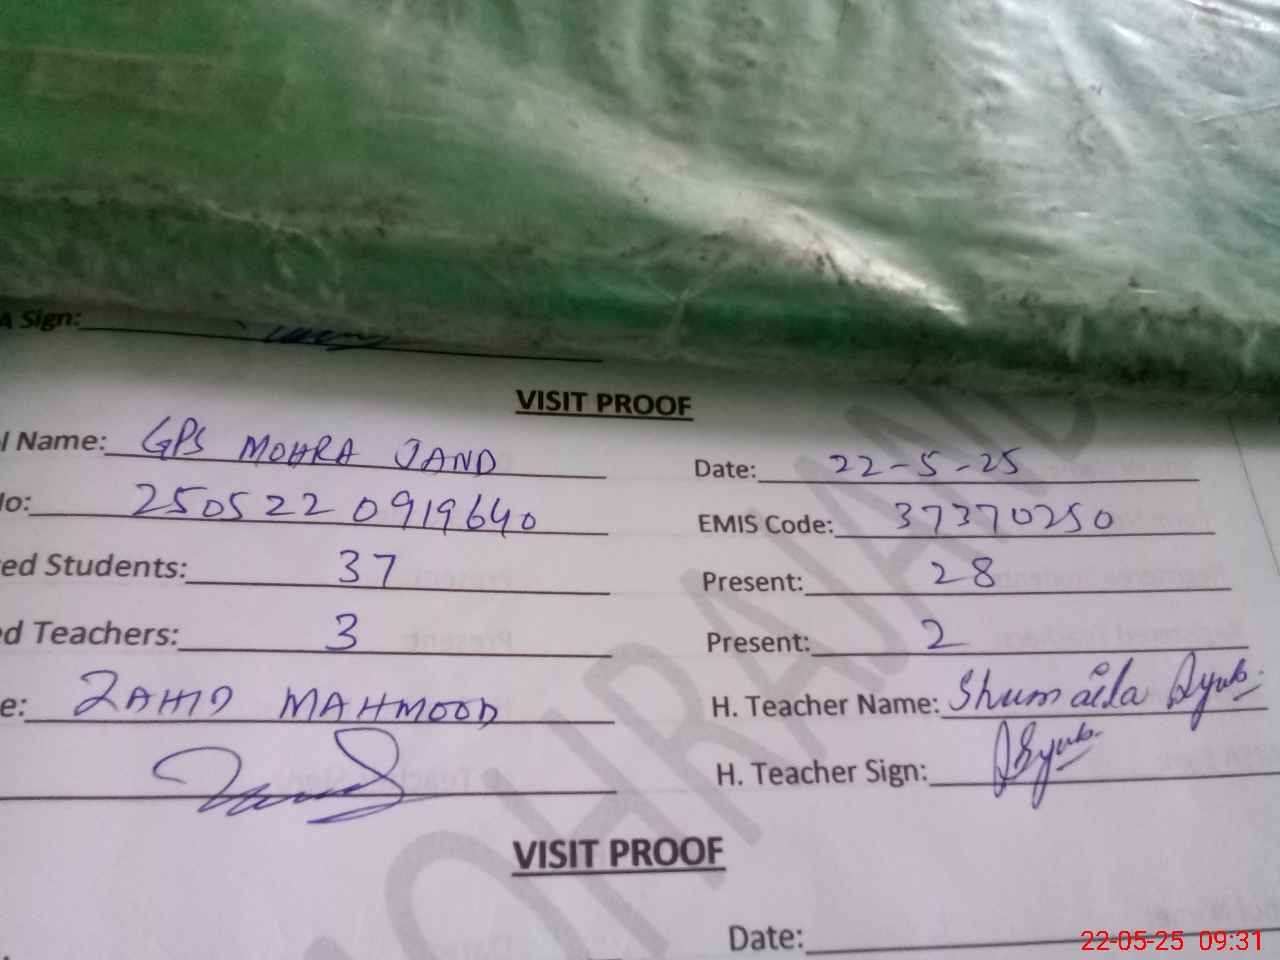 A Sign:
VISIT PROOF
l Name: GPS MOHRA JAND Date: 22-5-25
No: 250522 0919640 EMIS Code: 37370250
ed Students: 37 Present: 28
d Teachers: 3 Present: 2
e: ZAHID MAHMOOD H. Teacher Name: Shumaila Ayub.
H. Teacher Sign: Ayub.
VISIT PROOF
Date:
MOHRAJAND
22-05-25 09:31